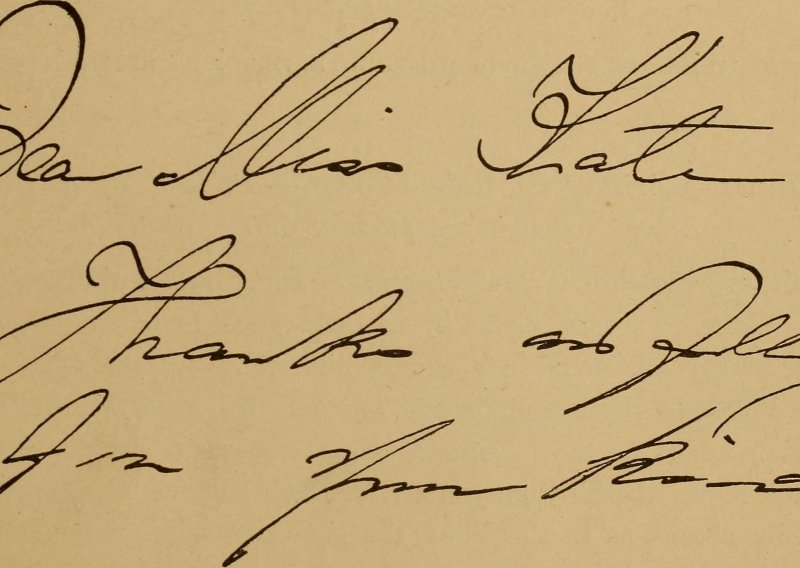 Dear Miss Kate
Thanks awfull
for your kind